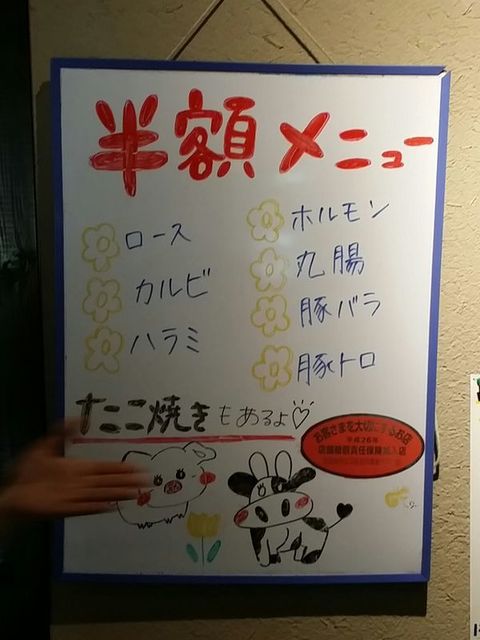 半額メニュー
ロース
カルビ
ハラミ
ホルモン
丸腸
豚バラ
豚トロ
たこ焼きもあるよ♡
お客さまを大切にするお店
平成26年
店舗賠償責任保険加入店